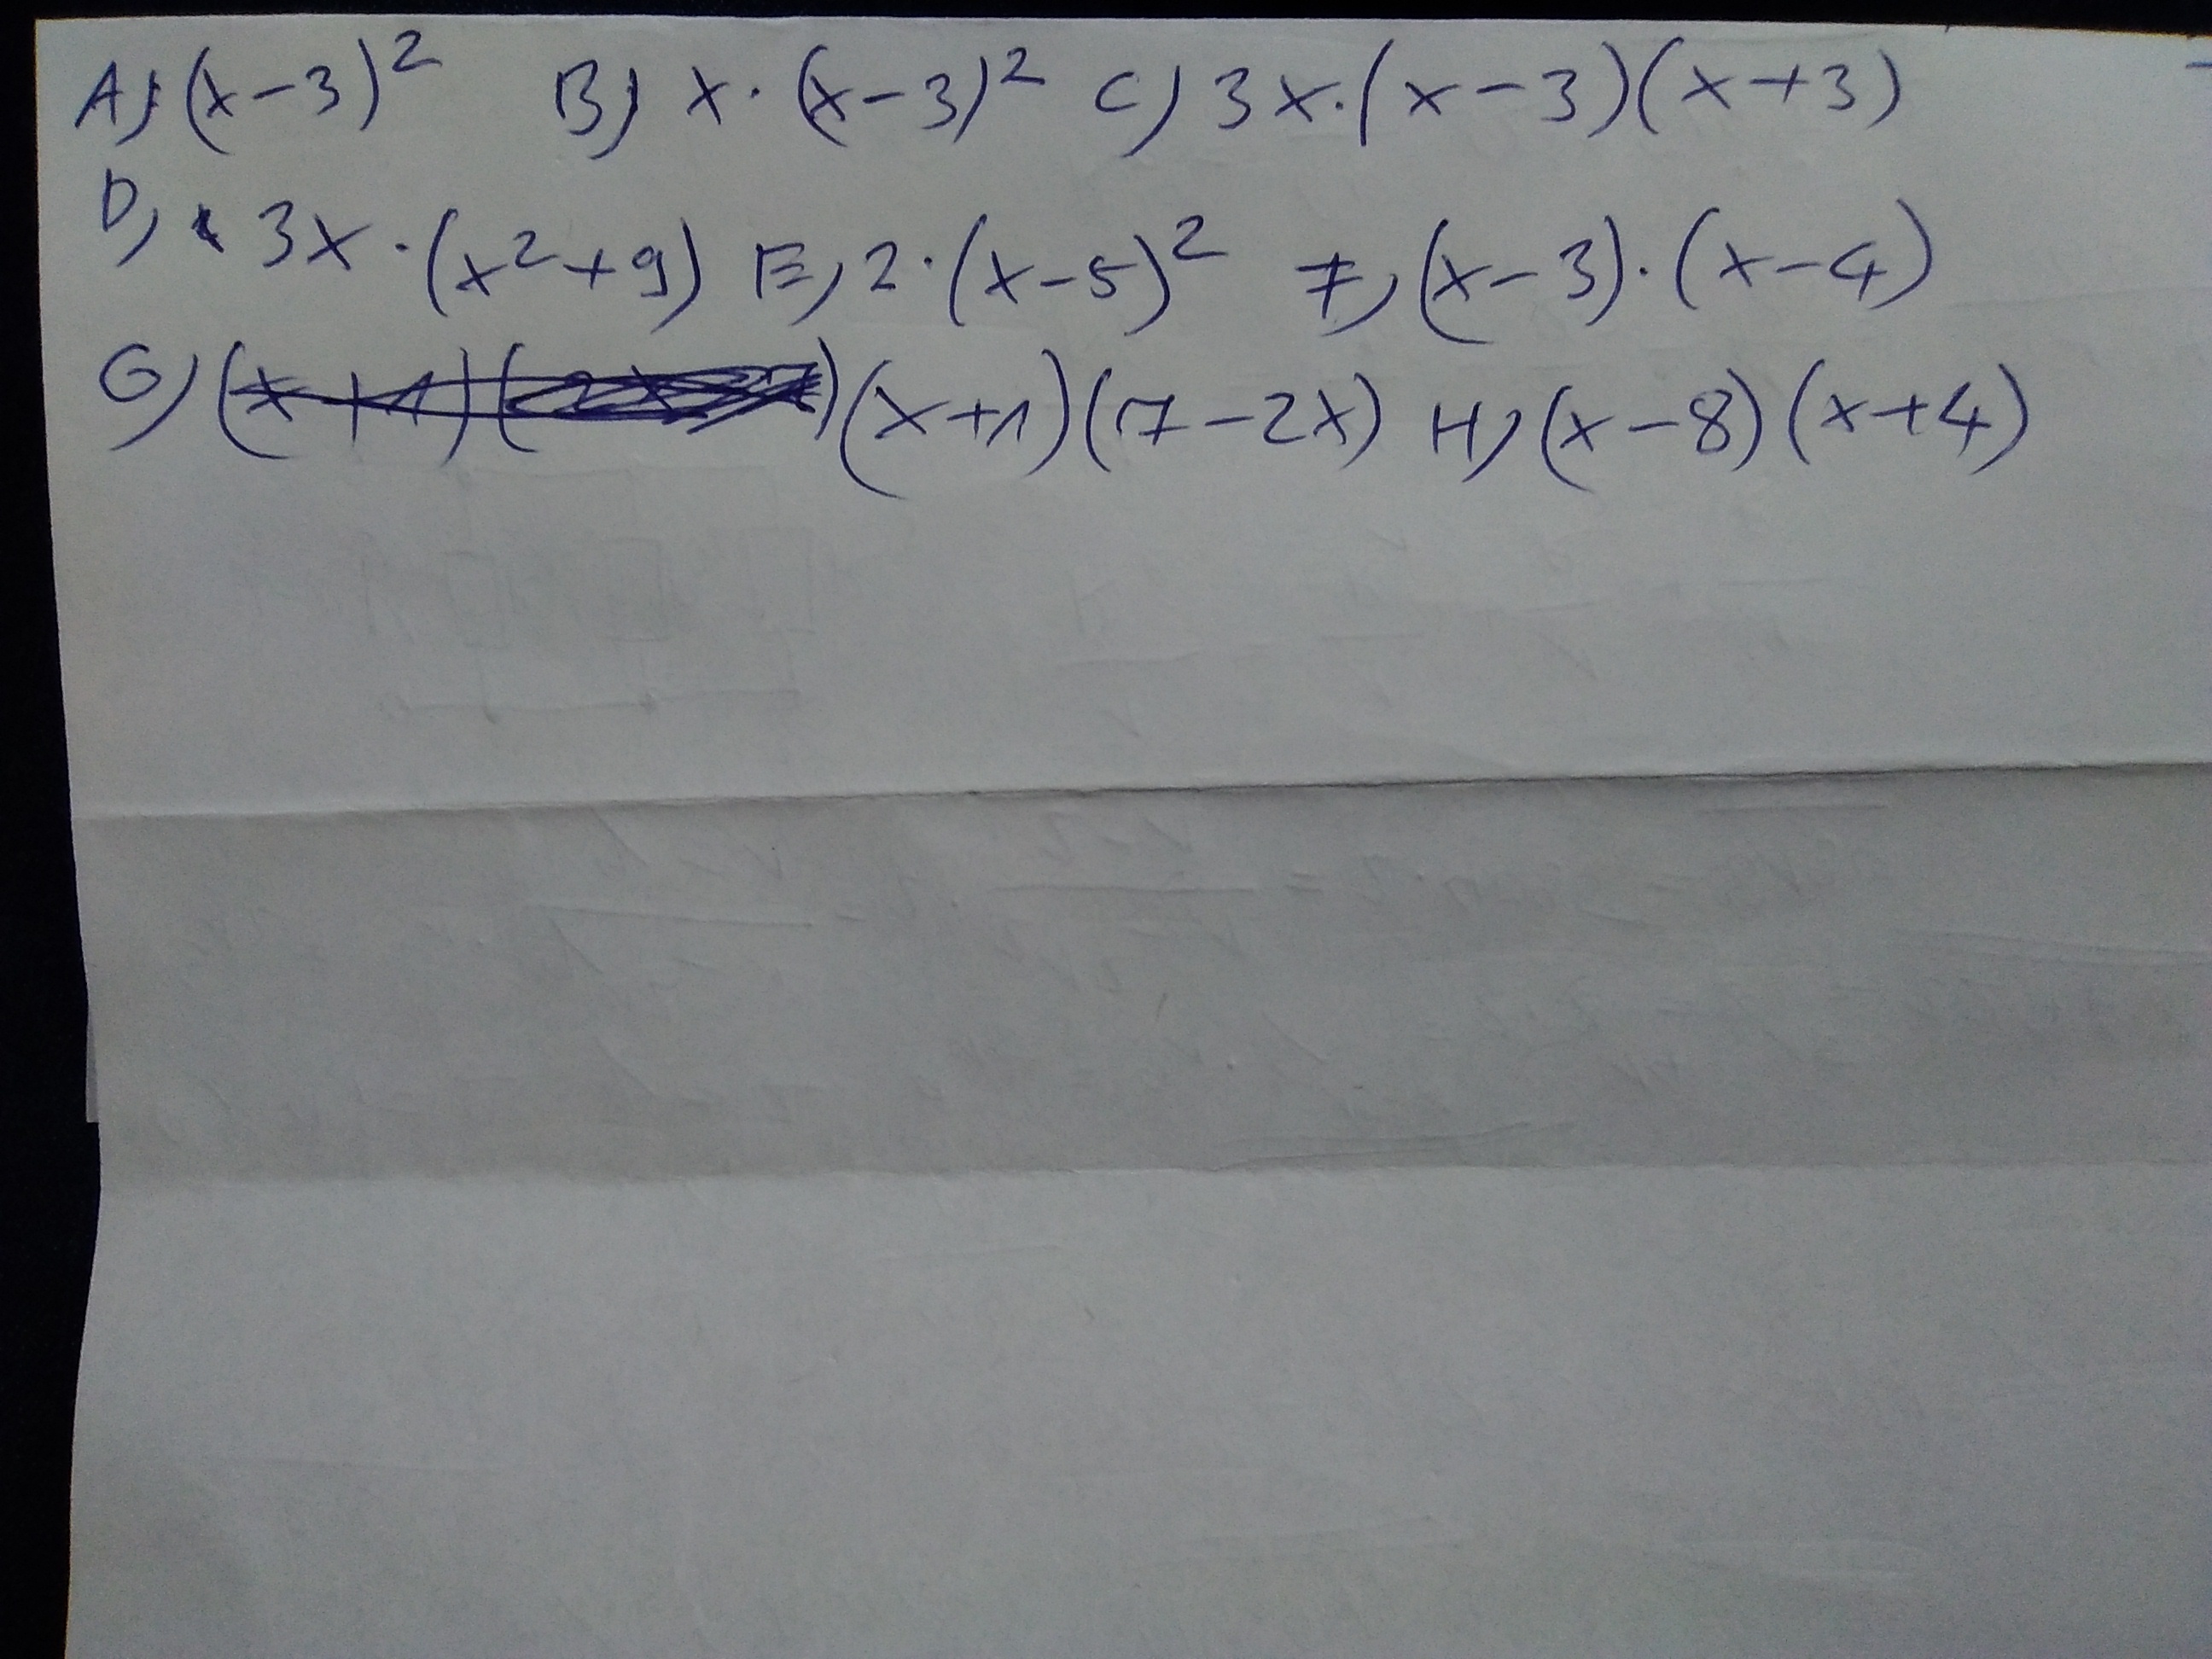 A) (x-3)² B) x·(x-3)² C) 3x·(x-3)(x+3)
D) 3x·(x²+9) E) 2·(x-5)² F) (x-3)·(x-4)
G) (x+1)(7-2x) H) (x-8)(x+4)